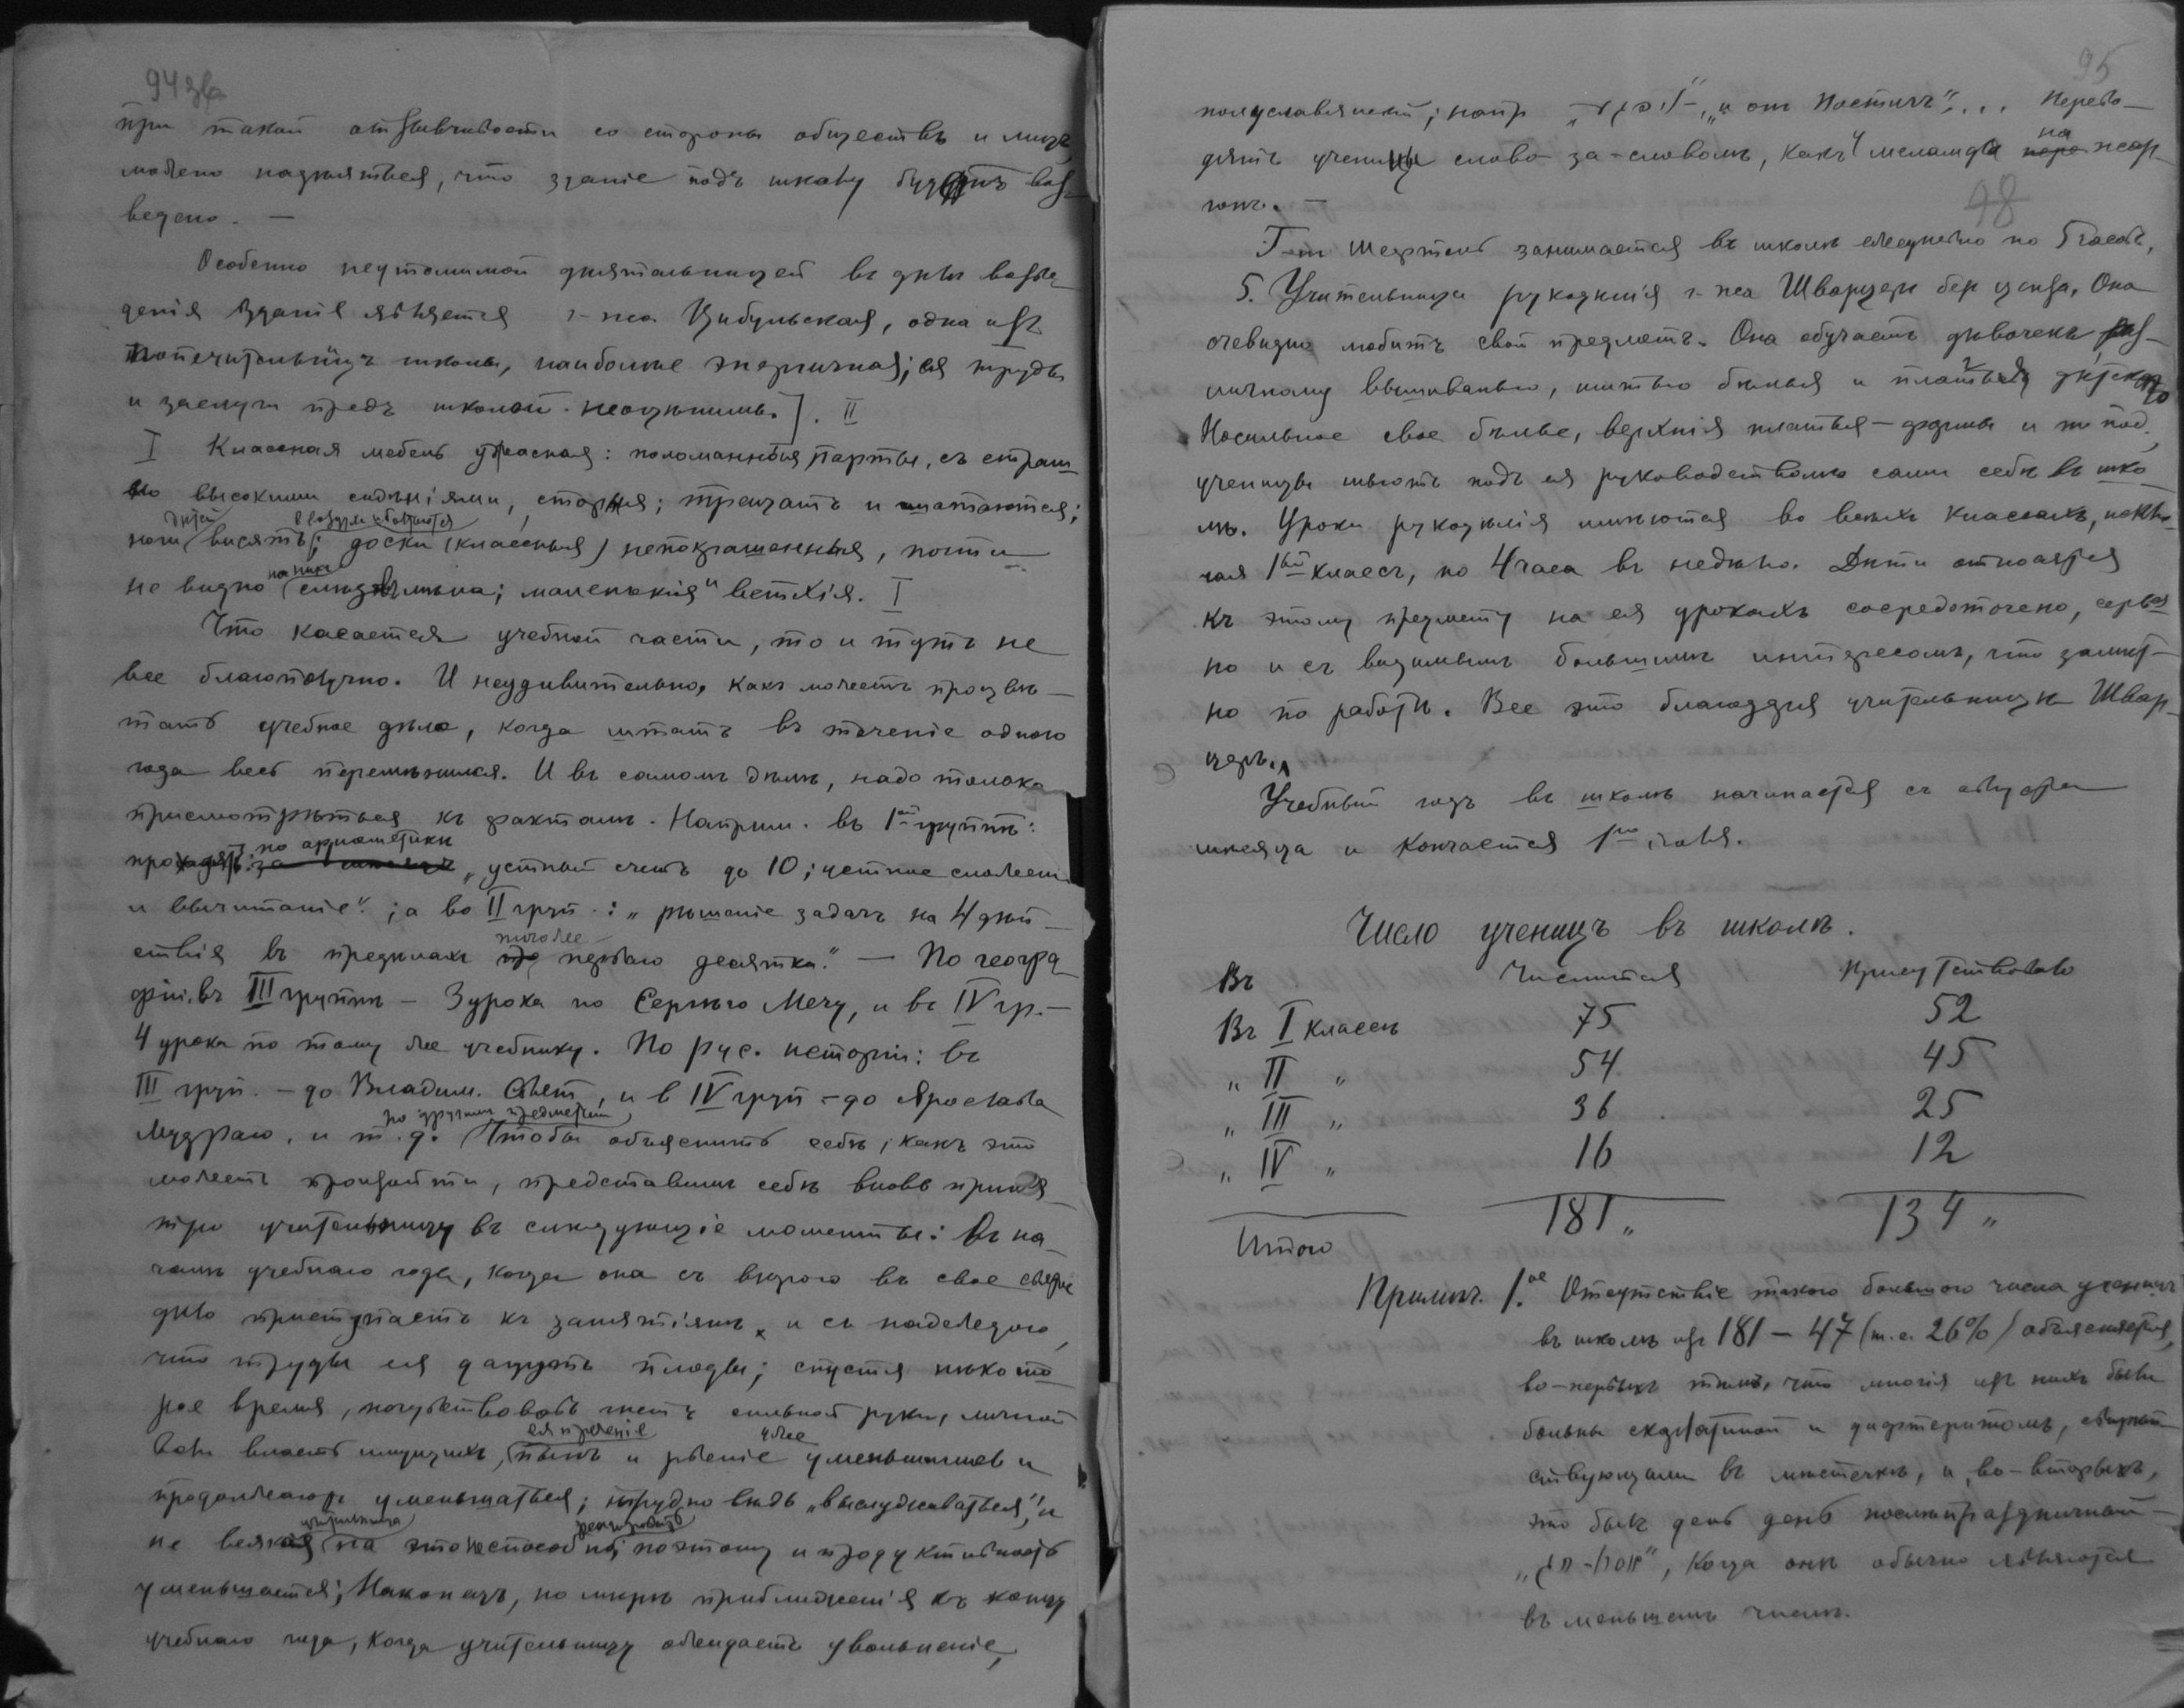 94 зв
при такой отзывчивости со стороны обществъ и лицъ
можно надѣяться, что зданіе подъ школу будетъ воз-
ведено. —
Особенно неутомимой дѣятельницей въ дѣлѣ возве-
денія зданія является г-жа Цибульская, одна изъ
попечительницъ школы, наиболѣе энергичная; ея труды
и заслуги предъ школой неоцѣнимы.]. II
I Классная мебель ужасная: поломанныя парты, съ страш-
но высокими сидѣніями, старыя; трещатъ и шатаются;
дѣтей въ воздухѣ и болтаются
ноги висятъ; доски (классныя) непокрашенныя, почти
на нихъ
не видно слѣдовъ мѣла; маленькія и ветхія. I
Что касается учебной части, то и тутъ не
все благополучно. И неудивительно, какъ можетъ процвѣ-
тать учебное дѣло, когда штатъ въ теченіе одного
года весь перемѣнился. И въ самомъ дѣлѣ, надо только
присмотрѣться къ фактамъ. Наприм. въ 1ой группѣ:
по ариѳметики
проходятъ: „устный счетъ до 10; устное сложеніе
и вычитаніе"; а во II груп.: „рѣшеніе задачъ на 4 дѣй-
ствія въ предѣлахъ перваго десятка." — По геогра-
фіи въ III группѣ — 3 урока по Сергѣю Мечу, и въ IV гр. —
4 урока по тому же учебнику. По рус. исторіи: въ
III груп. — до Владим. Свят., и в IV груп — до Ярослава
по другимъ предметамъ
Мудраго, и т. д. Чтобы объяснить себѣ, какъ это
можетъ произойти, представимъ себѣ вновь приня-
тую учительницу въ слѣдующіе моменты: Въ на-
чалѣ учебнаго года, когда она съ вѣрою въ свое
дѣло приступаетъ къ занятіямъ и съ надеждою,
что труды ея дадутъ плоды; спустя нѣкото-
рое время, почувствовавъ гнетъ сильной руки, личной
ея
воли власть имущихъ, пылъ и рвеніе уменьшились и
продолжаютъ уменьшаться; трудно вѣдь „выслуживаться", и
учительница
не всякая на это способна; поэтому и продуктивность
уменьшается; Наконецъ, по мѣрѣ приближенія къ концу
учебнаго года, когда учительницу ожидаетъ увольненіе,
95
полуславянскій; напр „ и онъ постигъ"... Перево-
на
дятъ ученицы слово-за-словомъ, какъ у меламда жар-
гонъ. —
98
Г-нъ занимается въ школѣ ежедневно по 5 часовъ,
5. Учительница рукодѣлія г-жа Шварцеръ безъ ценза. Она
очевидно любитъ свой предметъ. Она обучаетъ дѣвочекъ раз-
личному вышиванью, шитью бѣлья и платья
Носильное свое бѣлье, верхнія платья — формы и т. под.,
ученицы шьютъ подъ ея руководствомъ сами себѣ въ шко-
лѣ. Уроки рукодѣлія имѣются во всѣхъ классахъ, исклю-
чая 1ый классъ, по 4 часа въ недѣлю. Дѣти относятся
къ этому предмету на ея урокахъ сосредоточено, серьез-
но и съ видимымъ большимъ интересомъ, что замѣт-
но по работѣ. Все это благодаря учительницѣ Швар-
церъ.
Учебный годъ въ школѣ начинается съ августа
мѣсяца и кончается 1го іюня.
Число ученицъ въ школѣ.
Въ Числится Присутствовало
Въ I классѣ 75 52
„ II „ 54 45
„ III „ 36 25
„ IV „ 16 12
Итого 181 „ 134 „
Примѣч. 1.ое Отсутствіе такого большого числа ученицъ
въ школѣ изъ 181 — 47 (т. е. 26%) объясняется,
во-первыхъ тѣмъ, что многія изъ нихъ были
больны скарлатиной и дифтеритомъ, свирѣп-
ствующими въ мѣстечкѣ, и, во-вторыхъ,
это былъ день день послѣпраздничный —
„", когда онѣ обычно являются
въ меньшемъ числѣ.